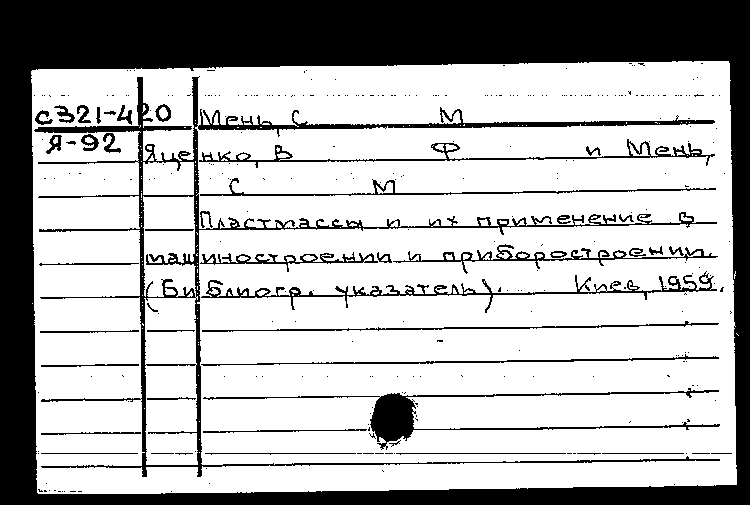 с321-420 Мень, С М
Я-92
Яценко, В Ф и Мень,
С М
Пластмассы и их применение в
машиностроении и приборостроении.
(Библиогр. указатель). Киев, 1959.